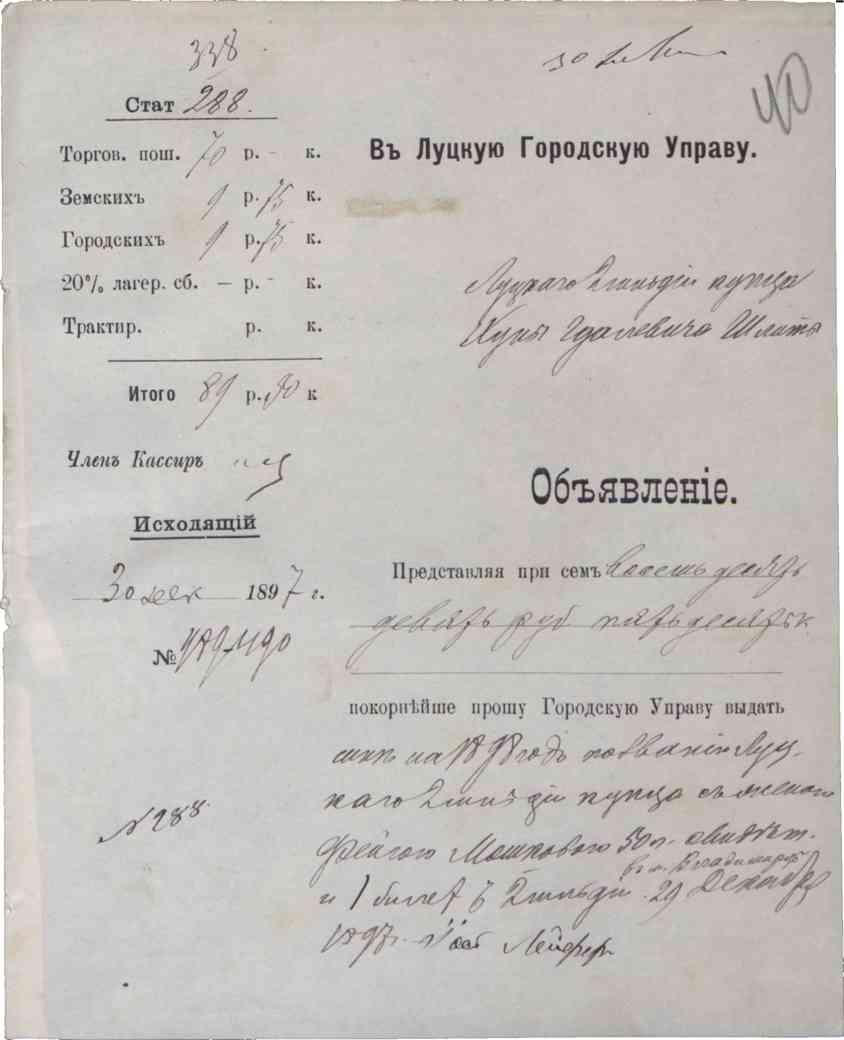 338
Стат 288.
Торгов. пош. 70 р. - к.
Земскихъ 9 р. 75 к.
Городскихъ 9 р. 75 к.
20% лагер. сб. — р. - к.
Трактир. р. к.
Итого 89 р. 50 к
Членъ Кассиръ
Исходящій
30 дек 1897 г.
№
N 288
30
40
Въ Луцкую Городскую Управу.
Луцкаго 2 гильдіи купца
Гдалевича
Объявленіе.
Представляя при семъ восемьдесятъ
девять руб пятьдесятъ к.
покорнѣйше прошу Городскую Управу выдать
мнѣ на 1898 годъ по званію Луц-
каго 2 гильдіи купца съ женою
Фейгою Мошковою 50 р. свидѣт.
въ г. Владимірѣ
и 1 билет 2 гильдіи. 29 Декабря
1897 г.